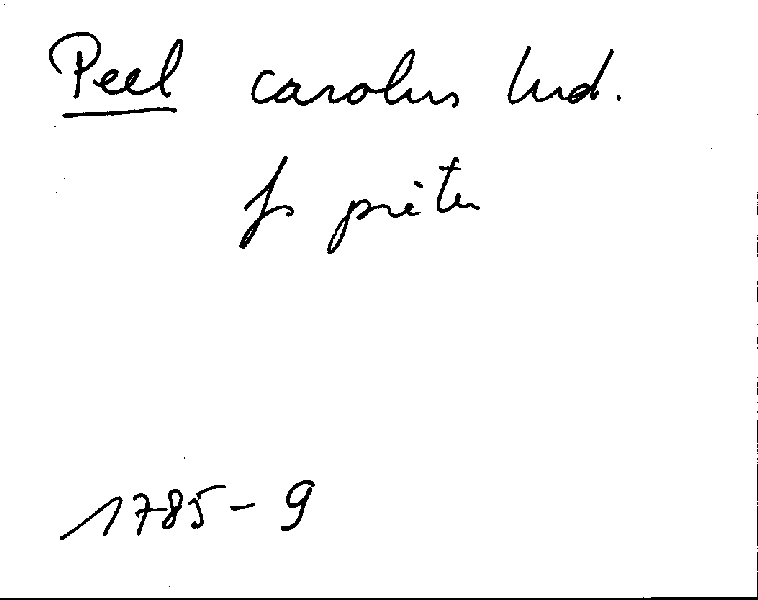 Peel carolus Lud.
fs piêter
1785-9